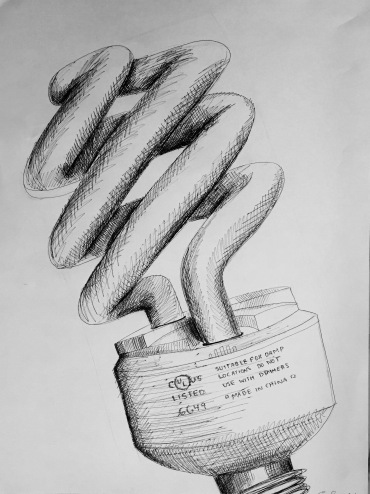 C UL US
LISTED
6G49
SUITABLE FOR DAMP
LOCATIONS DO NOT
USE WITH DIMMERS
MADE IN CHINA